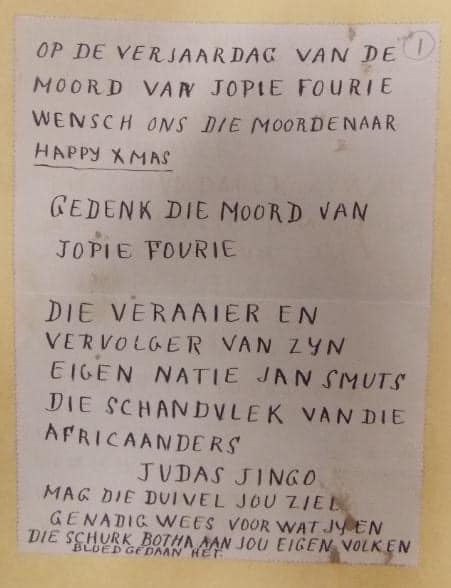 OP DE VERJAARDAG VAN DE 1
MOORD VAN JOPIE FOURIE
WENSCH ONS DIE MOORDENAAR
HAPPY XMAS
GEDENK DIE MOORD VAN
JOPIE FOURIE
DIE VERAAIER EN
VERVOLGER VAN ZYN
EIGEN NATIE JAN SMUTS
DIE SCHANDVLEK VAN DIE
AFRICAANDERS
JUDAS JINGO
MAG DIE DUIVEL JOU ZIEL
GENADIG WEES VOOR WAT JY EN
DIE SCHURK BOTHA AAN JOU EIGEN VOLK EN
BLOED GEDAAN HET.